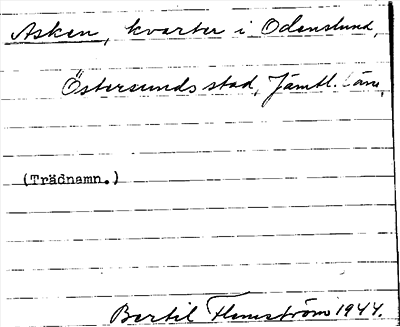 Asken, kvarter i Odenslund,
Östersunds stad, Jämtl. län,
(Trädnamn.)
Bertil Flemström 1944.